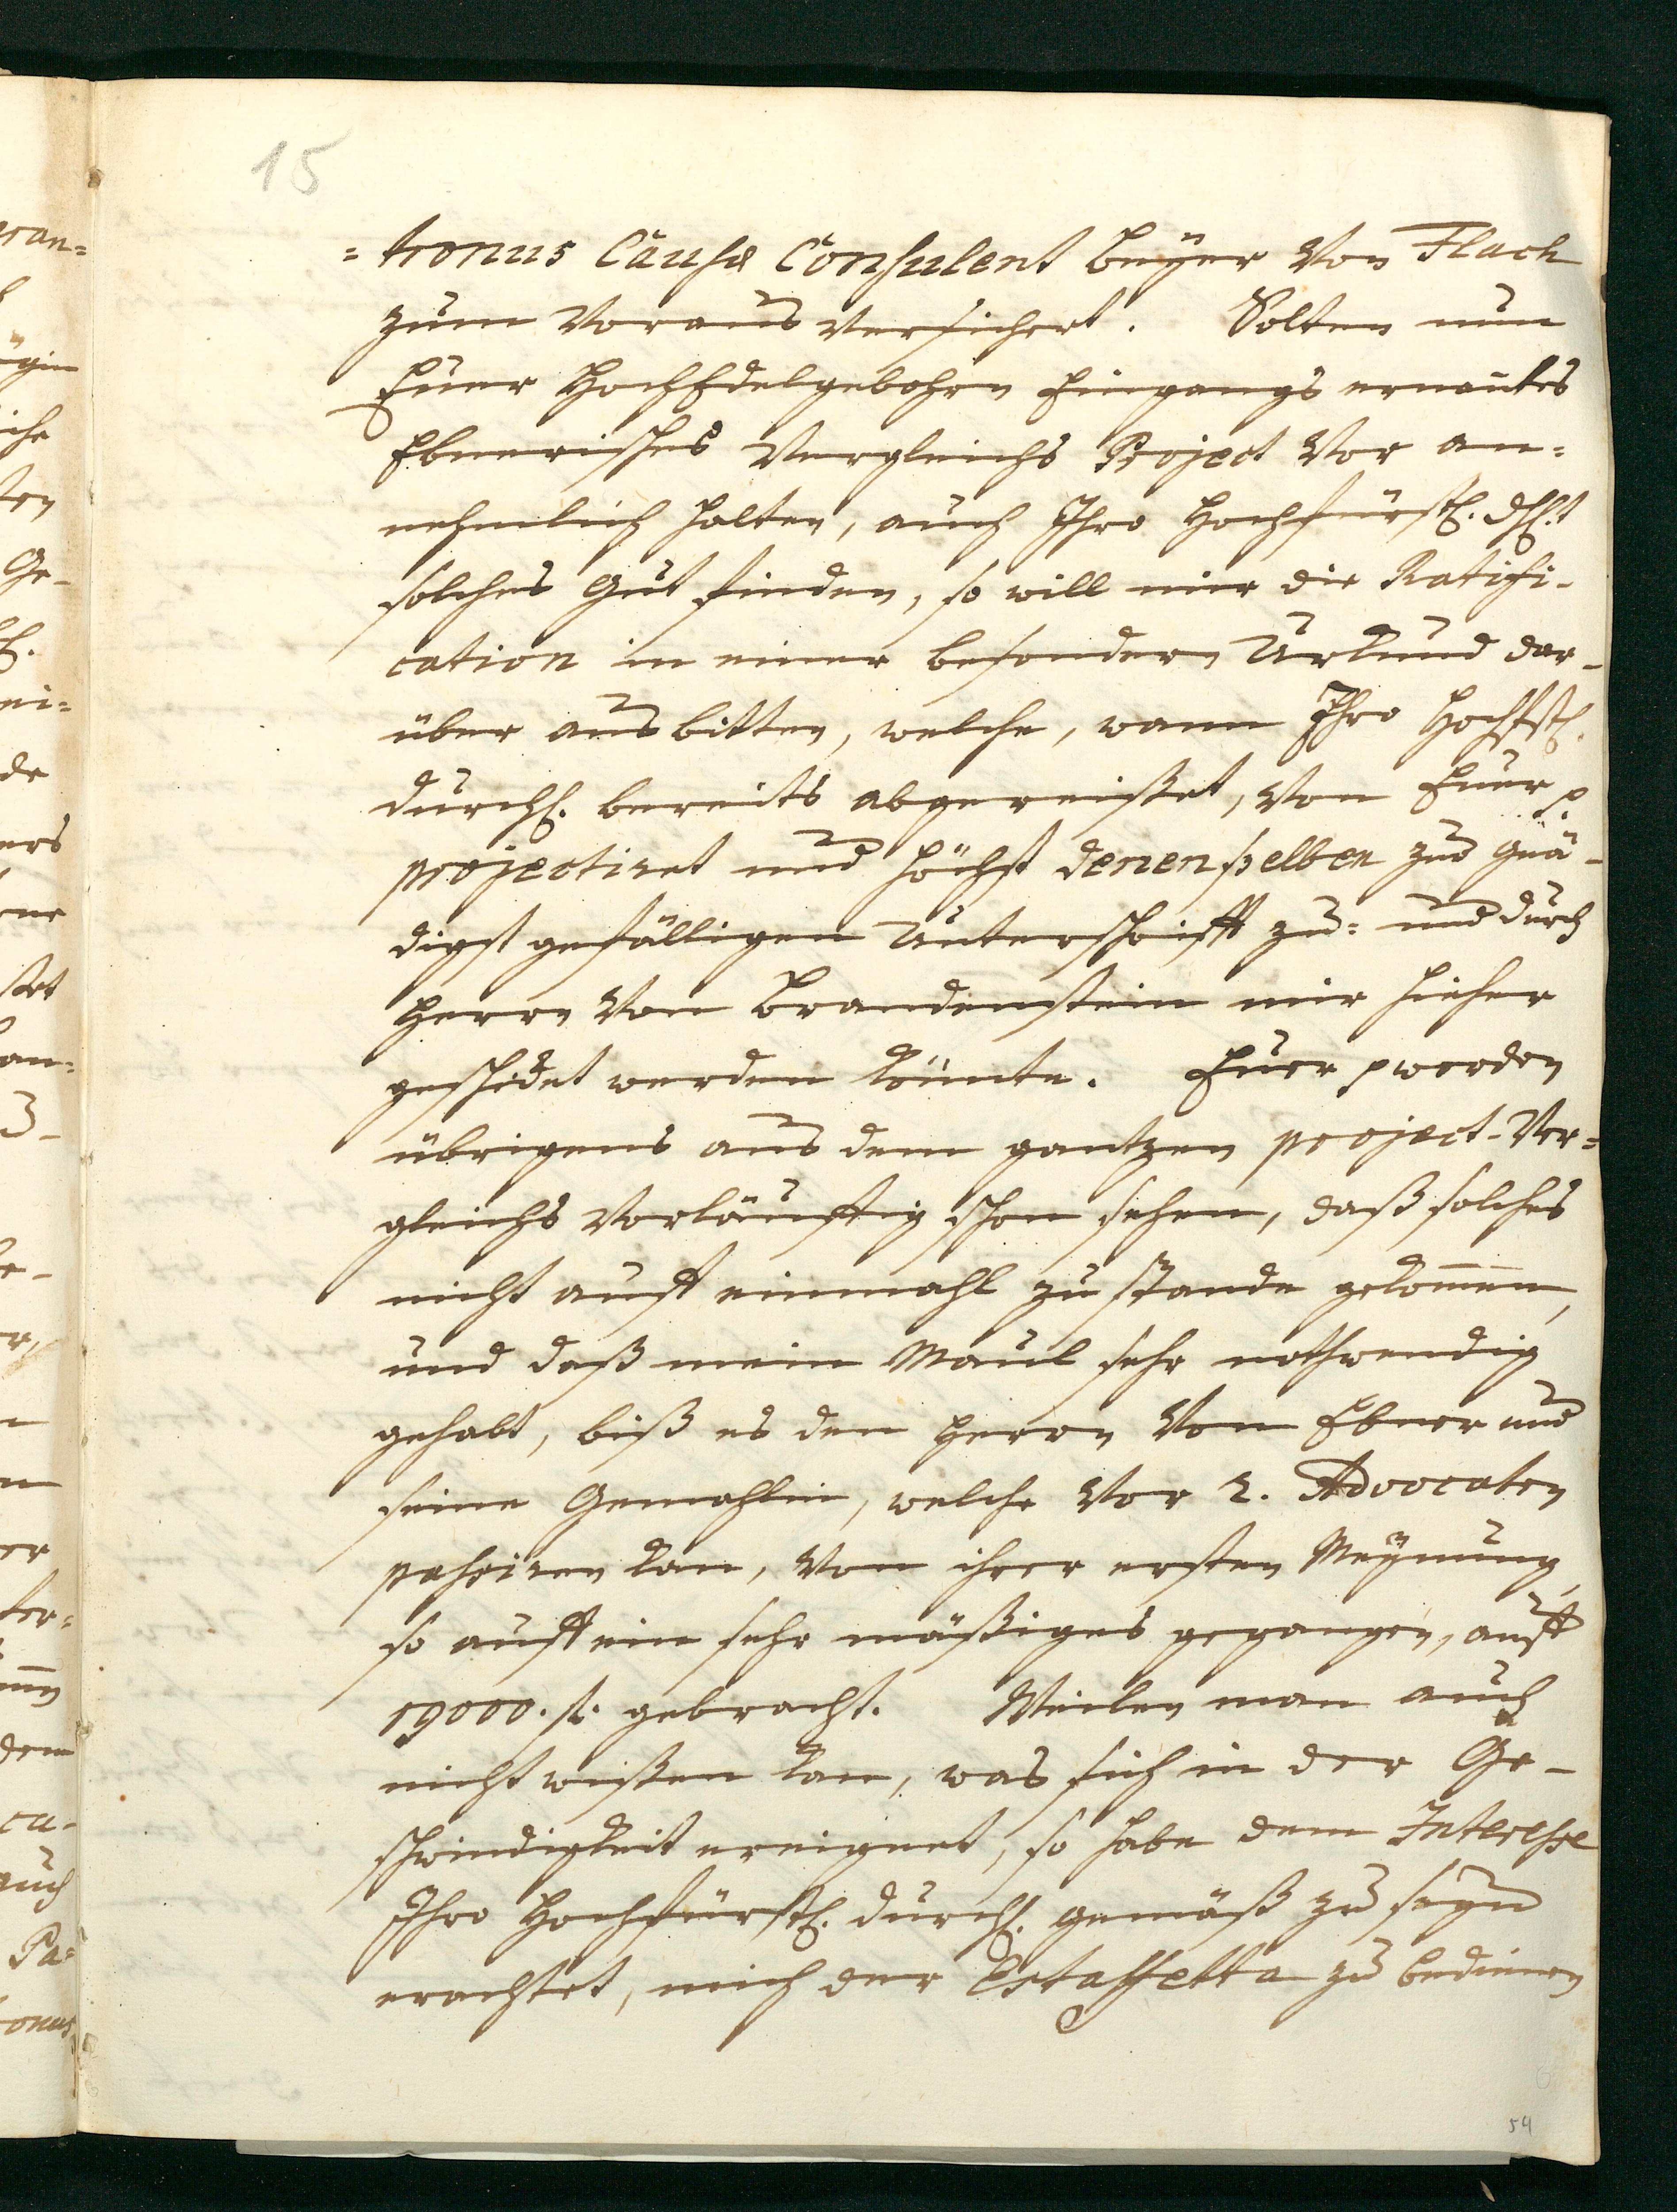 15
=tronus Causæ Consulent Beÿer von Flach
zum Voraus versichert. Solten nun
Euer HochEdelgebohrn Eingangs ernantes
Ebnerisches Vergleichs Project vor an=
nehmlich halten, auch Ihro Hochfürstl. Dhl.t
solches Gut finden, so will mir die Ratifi-
cation in einer besondern Urkund dar-
über aus bitten, welche, wann Ihro Hochfstl.
Durchl. bereits abgereißet, von Euer p.
projectiret und höchst denenselben zur gnä-
digst gefälligen Unterschrifft zu= und durch
Herrn von Brandenstein mir hieher
geschickt werden könnte. Euer p werden
übrigens aus dem gantzen project-Ver=
gleichs vorläuffig schon sehen, daß solches
nicht auff einmahl zu stande gekommen,
und daß mein Maul sehr nothwendig
gehabt, biß es den Herrn von Ebner und
seine Gemahlin, welche vor 2. Advocaten
passiren kan, von ihrer ersten Meynung,
so auff ein sehr mäßiges gegangen, auff
19000. f. gebracht. Weilen man auch
nicht wißen kan, was sich in der Ge-
schwindigkeit ereignet, so habe dem Interesse
Ihro Hochfürstl. Durchl. gemäß zu seyn
erachtet, mich der Estaffetta zu bedienen
54